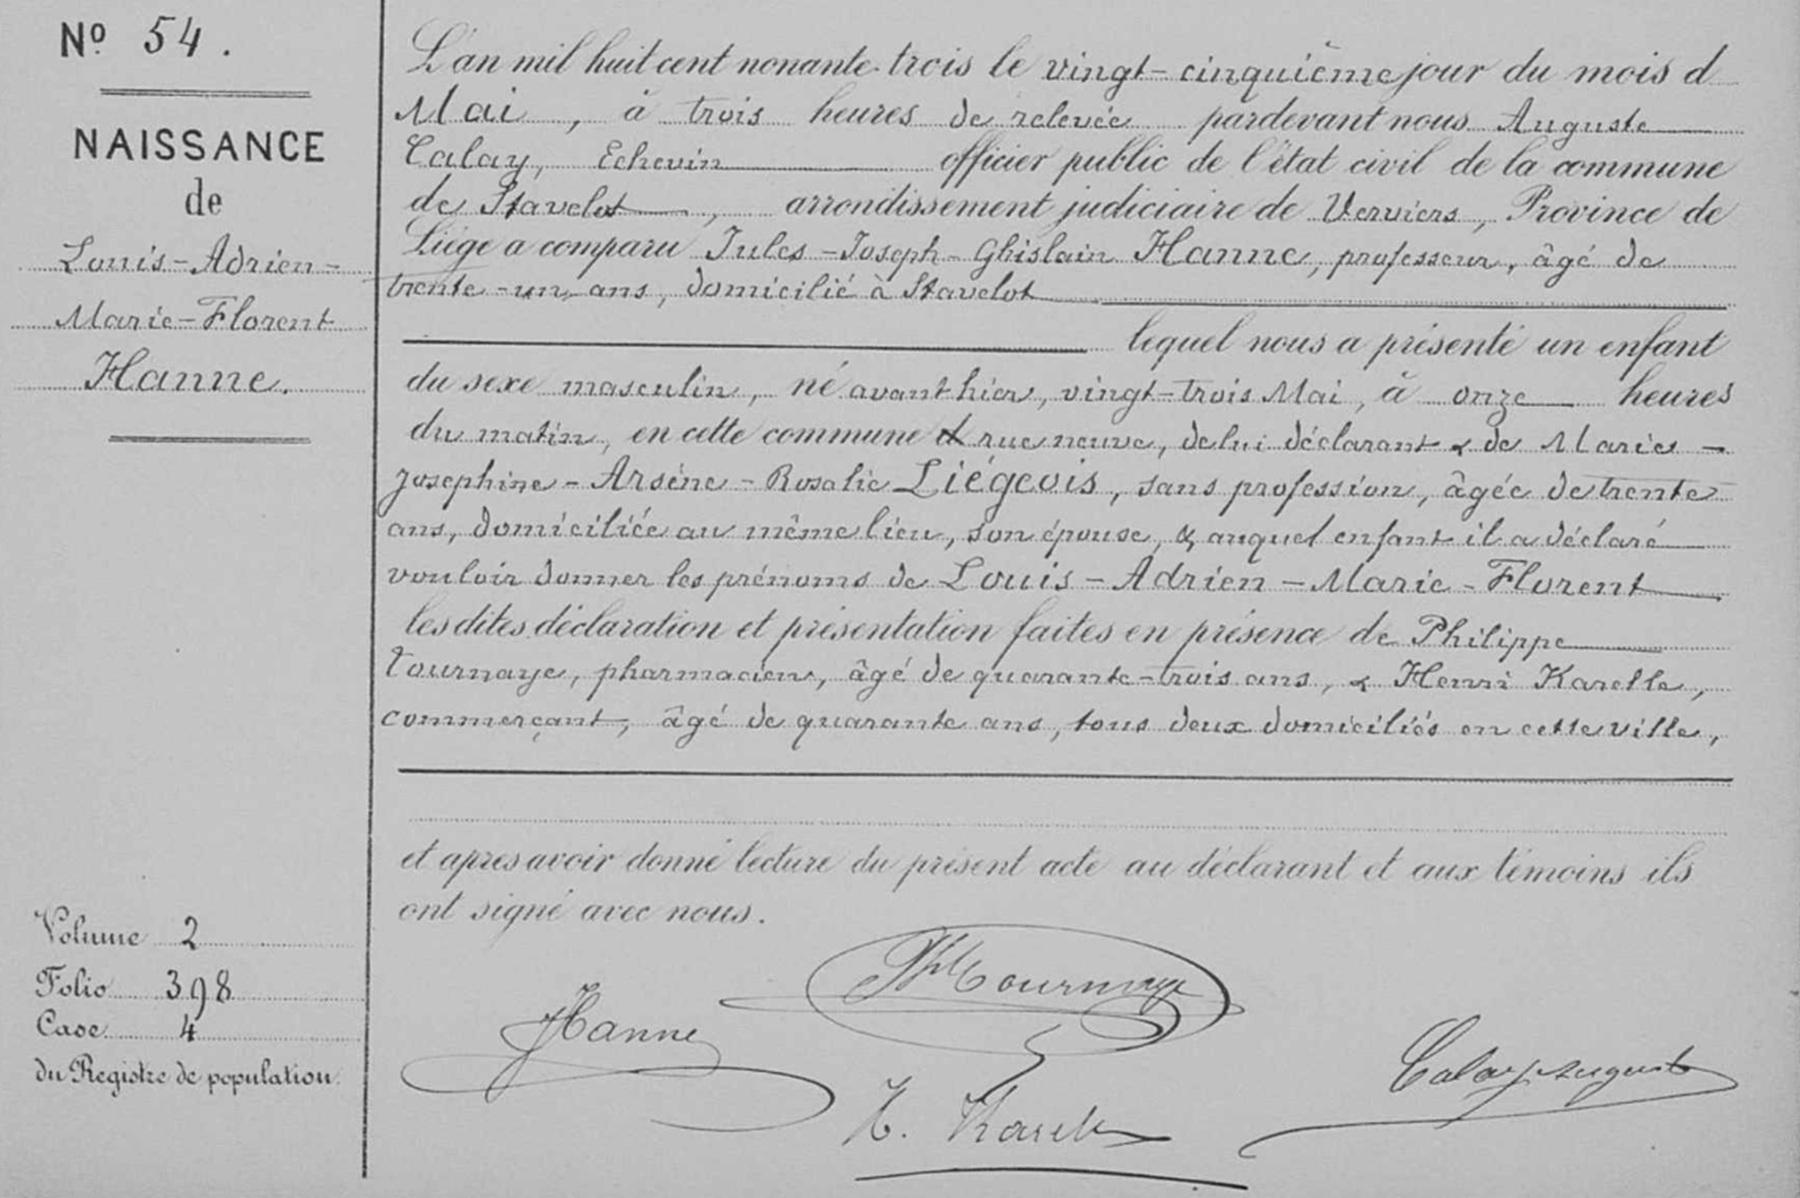 Nº 54.
NAISSANCE
de
Louis-Adrien-
Marie-Florent
Hanne.
Volume 2
Folio 398
Case 4
du Registre de population.
L'an mil huit cent nonante-trois le vingt-cinquième jour du mois d
Mai, à trois heures de relevée pardevant nous Auguste
Calay, Echevin officier public de l'état civil de la commune
de Stavelot, arrondissement judiciaire de Verviers, Province de
Liége a comparu Jules-Joseph-Ghislain Hanne, professeur, âgé de
trente-un ans, domicilié à Stavelot
lequel nous a présenté un enfant
du sexe masculin, né avant hier, vingt-trois Mai, à onze heures
du matin, en cette commune rue neuve, de lui déclarant & de Marie-
Josephine-Arsène-Rosalie Liégeois, sans profession, âgée de trente
ans, domiciliée au même lieu, son épouse, & auquel enfant il a déclaré
vouloir donner les prénoms de Louis-Adrien-Marie-Florent
les dites déclaration et présentation faites en présence de Philippe
Tournaye, pharmacien, âgé de quarante-trois ans, & Henri Karelle,
commerçant, âgé de quarante ans, tous deux domiciliés en cette ville,
et après avoir donné lecture du présent acte au déclarant et aux témoins ils
ont signé avec nous.
Ph Tournaye
JHanne
Calay Auguste
H. Karelle